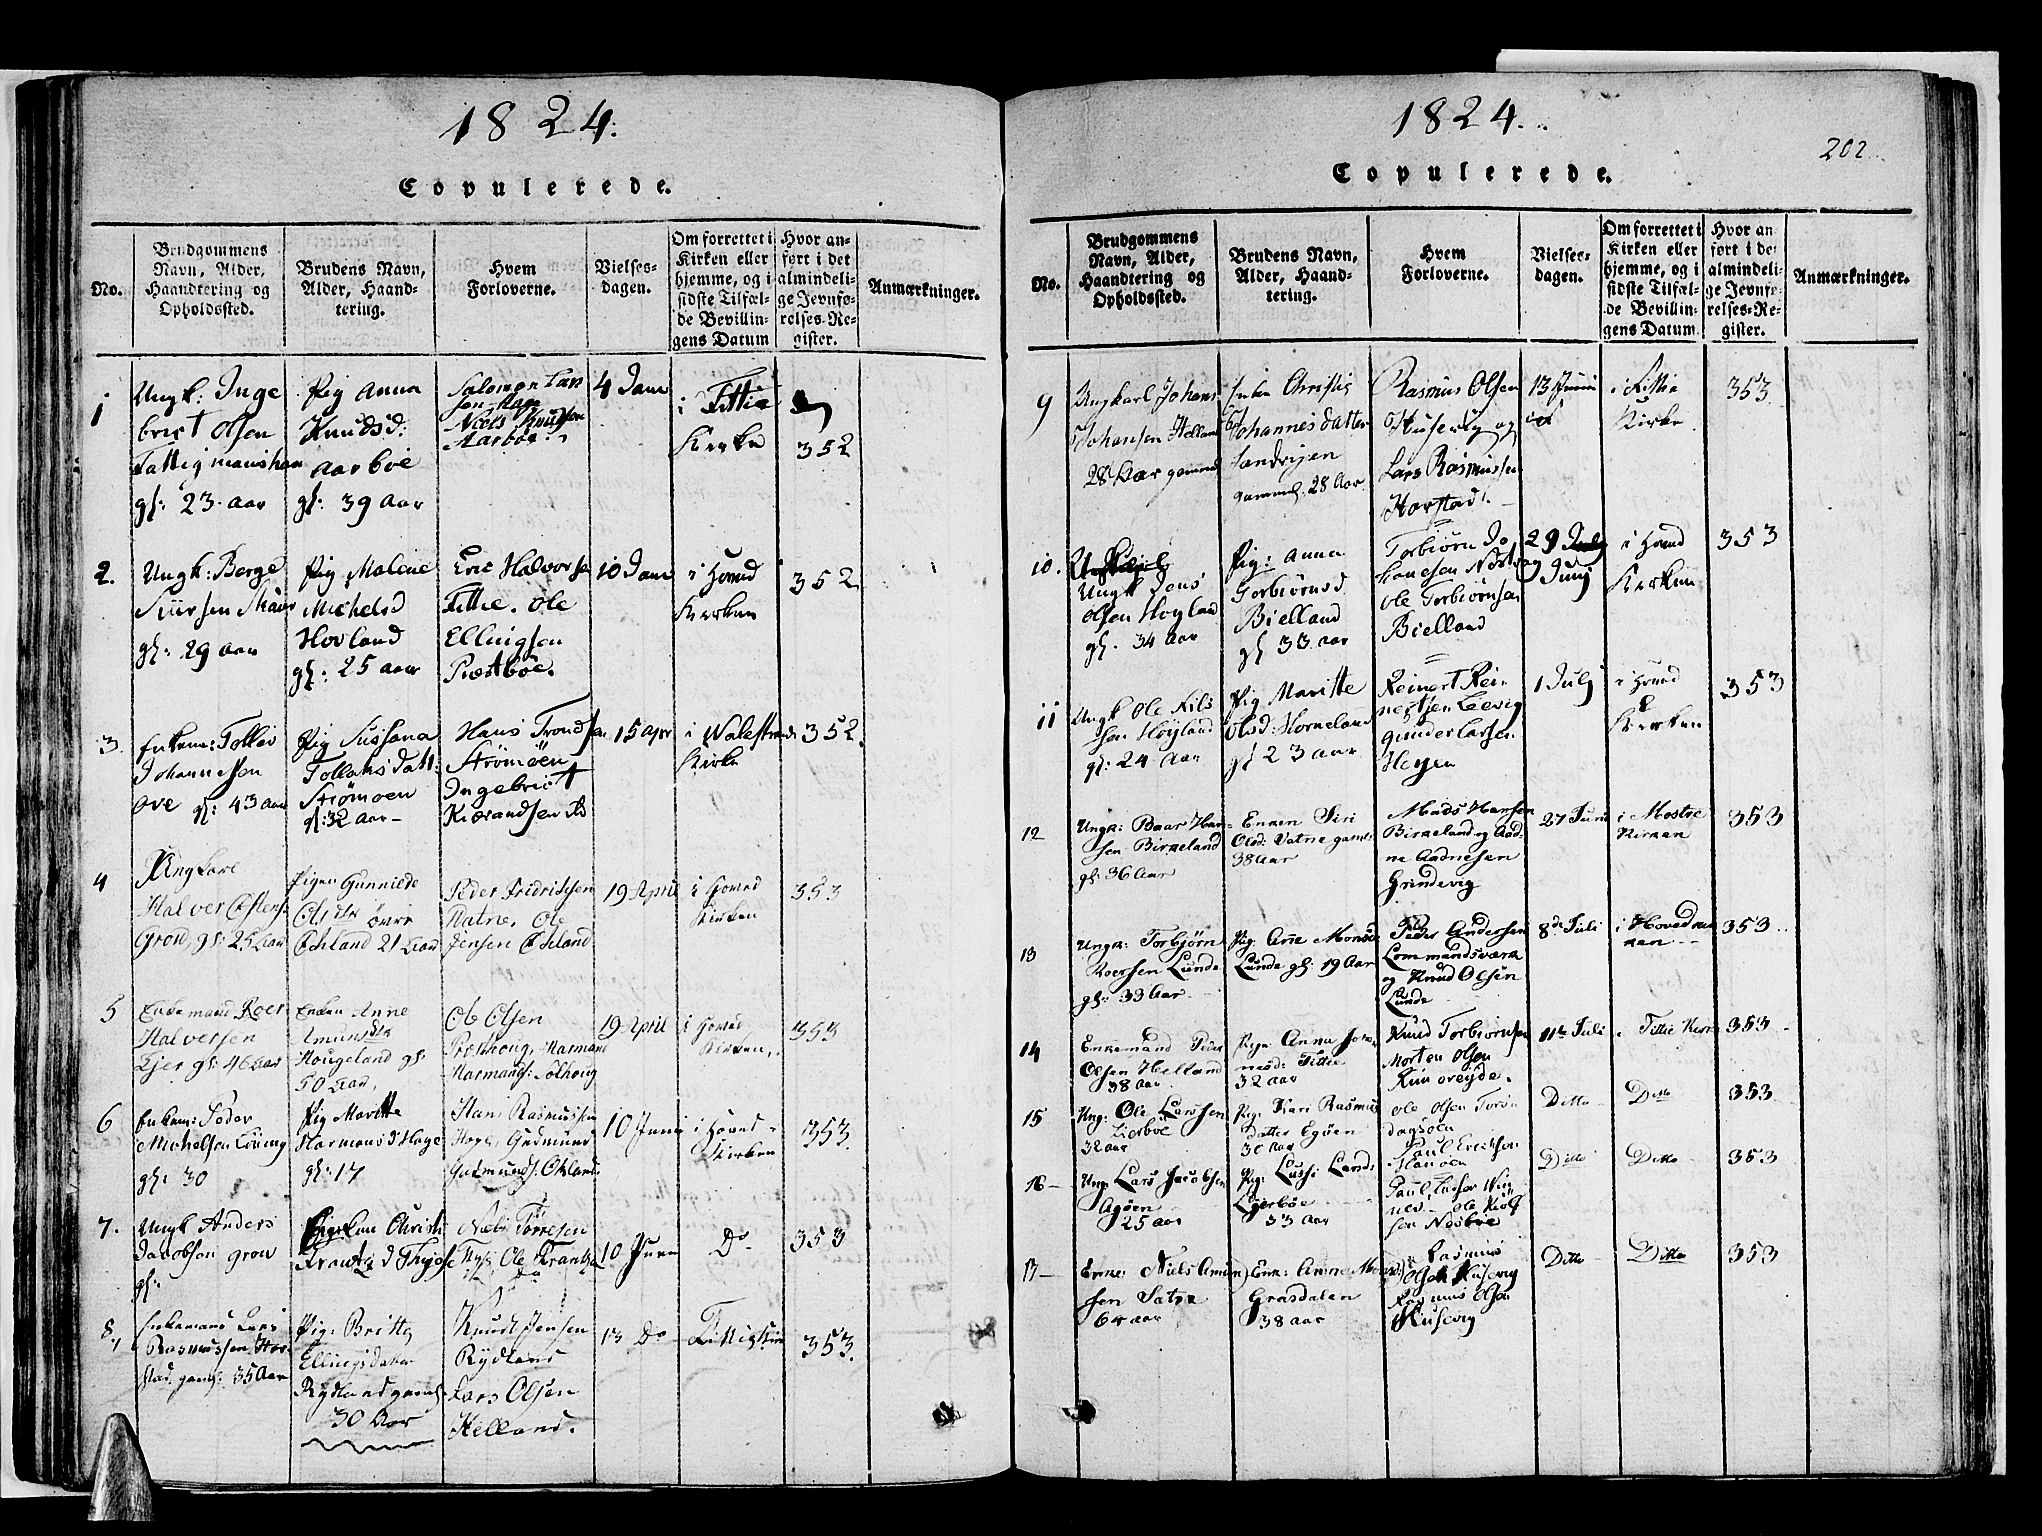 1824.
Copulerede.
No.
Brudgommens
Navn, Alder,
Haandtering og
Opholdssted.
Brudens Navn,
Alder, Haand-
tering.
Hvem
Forloverne.
Vielses-
dagen.
Om forrettet i
Kirken eller
hjemme, og i
sidste Tilfæl-
de Bevillin-
gens Datum
Hvor an-
ført i det
almindeli-
ge Jevnfø-
relses-Re-
gister.
Anmærkninger.
1
Ungk: Inge
brict Olsen
Fattigmanshavn
gl: 23 aar
Pig Anna
Knudsd:
Aarbøe
gl: 39 Aar
Salomon Lar
sen Hage
Niels Knudsen
Aarbøe
4 Janu
i Fittie
Kirke
352
2.
Ungk: Berge
gl: 29 aar
Pig Malene
Michelsd
Hovland
gl: 25 aar
Eric Halvorse
Fittie. Ole
Ellingsen
Præstbøe.
10 Janu
i Hovud
Kirken
352
3.
Enkem: Tollev
Johannessen
Ove gl: 43 aar
Pig Sussana
Tollans datt:
Strømøen
gl: 32 aar
Hans Trondsen
Strømøen
Ingebrict
15 apr
i Walestrands
Kirke
352.
4
Ungkarl
Halver Østens
Grov, gl: 25 Aar
Pigen Gunnilde
Ols dtr øvre
Økland 21 Aar
Peder Fridrichsen
Natne, Ole
Jensen Økland
19 April
i Hoved
Kirken
353
5
Enkemand Roer
Halversen
Ejer gl: 46 Aar
Enken Anne
Amunds
Hougeland gl:
50 Aar,
Ole Olsen
Presthoug, Narmand
Narmands: Solhoug
19 April
i Hoved
Kirken,
353
6
Enkem: Peder
Michelsen
gl: 30
Pig Maritte
Narmans d Hage
gl: 17
Hans Rasmussen
Hage, Gudmund
Gudmunds: Økland
10 Junii
i Hoved-
Kirken
353.
7.
Ungk Anders
Jacobsen grov
gl:
Christi
Frantz d
Niels Tørresen
Ole Frantzen
10 Juni
Do
353
8,
Enkemand Lars
Rasmussen Hor
stad gaml: 35 Aar
Pig: Britte
Ellingsdatter
Rydland gaml:
30 Aar
Knud Jensen
Rydland
Lars Olsen
Helland.
13 Do
Fittie Kirke
353.
1824.
202
Copulerede.
No.
Brudgommens
Navn, Alder,
Haandtering og
Opholdssted.
Brudens Navn,
Alder, Haand-
tering.
Hvem
Forloverne.
Vielses-
dagen.
Om forrettet i
Kirken eller
hjemme, og i
sidste Tilfæl-
de Bevillin-
gens Datum
Hvor an
ført i det
almindeli-
ge Jevnfø-
relses-Re-
gister.
Anmærkninger.
9
Ungkarl Johans
Johansen Helland
28 Aar gammel
Enken Christie
Johannes datter
Sandvigen
gammel. 28 Aar.
Rasmus Olsen
Husevig og
Lars Rasmussen
Horstad.
13 Junii
i Fittie
Kirke
353
10.
Ungk Jens
Olsen Høyland
gl. 34 Aar
Pig: Anna
Torbiørnsd
Bielland
gl 33 aar
Torbiørn Jo
Ole Torbiørnsen
Bielland
29
Junij
i Hovud
Kirken
353
11
Ungk Ole Nils
sen Høyland
gl: 24 Aar
Pig Maritte
Olsd: Horneland
gl 23 aar
Reinert Rei
nertsen Leevig
gunder Larsen
1 Julj
i Hovud
Kirken
353
12
Ungk: Baar Han-
sen Birkeland
gl: 36 Aar
Enken Siri
Olsd: Vatne gaml:
38 Aar
Mads Hansen
Birkeland og Aad-
ne Aadnesen
Grindevig
27 Juni
i Mostre
Kirken
353
13
Ungk: Torbjørn
Roersen Lunde
gl: 33 Aar
Pig. Anne Monsd
Lunde gl: 19 Aar
Peder Andersen
Lommandsværk
og Knud Olsen
Lunde
8de Juli
i Hovedkir
ken
353
14
Enkemand Peder
Olsen Helland
38 aar
Pige Anna Johan
nesd: Fittie
32 aar
Knud Torbiørnsen
Morten Olsen
Rimsreyde.
11te Juli
i Fittie Kirke
353
15
Ung: Ole Larssen
Lierbøe
32 aar
Pig: Kari Rasmus
datter Egøen
30 Aar
Ole Olsen Torøn
dagsøen
Paul Erichsen
Ditto
Ditto
353
16
Ung: Lars Jacobsen
Agøen
25 aar
Pig: Lussi Lands
Lgerbøe
33 Aar
Ole Kiøl
sen Nesbøe
Ditto
Ditto
353
17
Enke: Niels Amun
sen Satre
64 aar
Enk: Anne Monsd
Grasdalen
38 aar
Rasmus
Olsen Husevig
Rasmus Olsen
Husevig
Ditto
Ditto
353